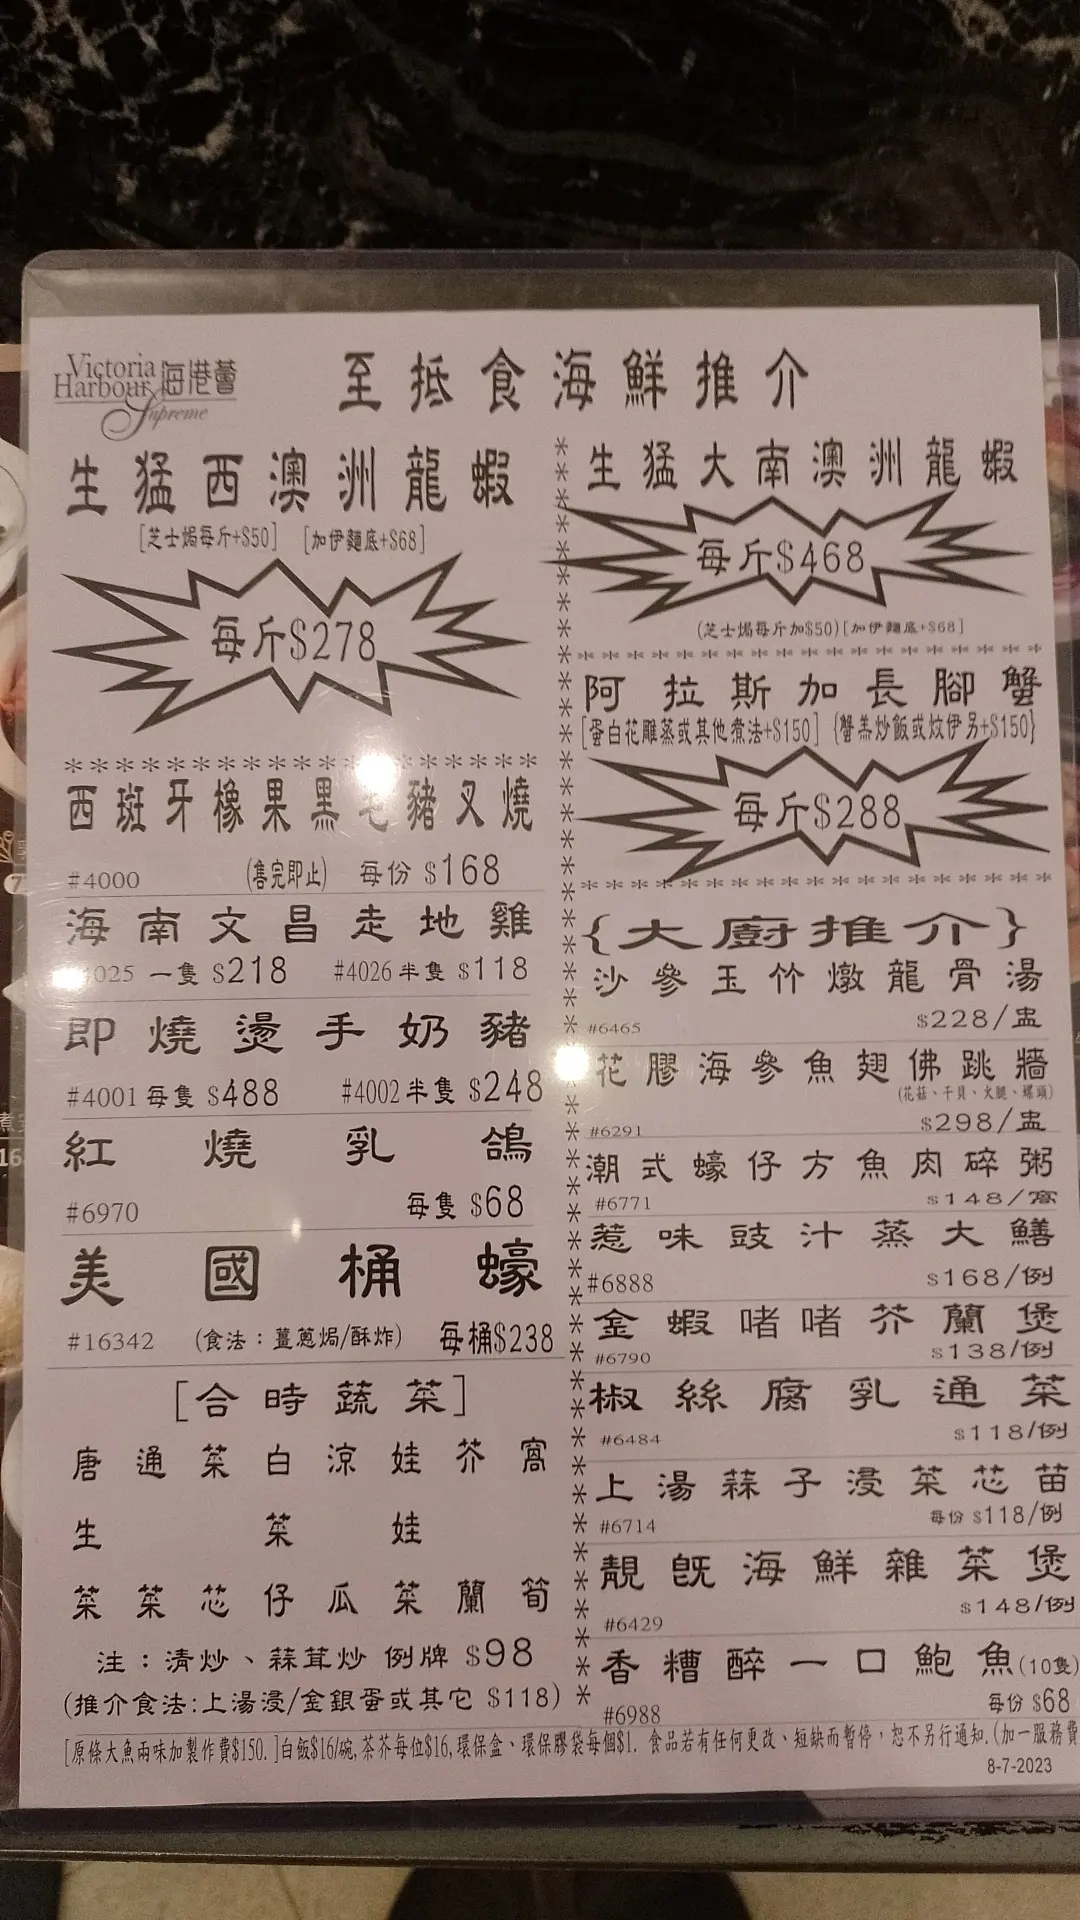 Victoria
Harbour 海港薈
Supreme
至抵食海鮮推介
生猛西澳洲龍蝦
[芝士焗每斤+$50] [加伊麵底+$68]
每斤$278
西班牙橡果黑毛豬叉燒
#4000 (售完即止) 每份 $168
海南文昌走地雞
#4025 一隻 $218 #4026 半隻 $118
即燒燙手奶豬
#4001 每隻 $488 #4002 半隻 $248
紅燒乳鴿
#6970 每隻 $68
美國桶蠔
#16342 (食法：薑蔥焗/酥炸) 每桶$238
[合時蔬菜]
唐通菜白涼娃芥窩
生菜娃
菜菜芯仔瓜菜蘭筍
注：清炒、蒜茸炒 例牌 $98
(推介食法:上湯浸/金銀蛋或其它 $118)
生猛大南澳洲龍蝦
每斤$468
(芝士焗每斤加$50)[加伊麵底+$68]
阿拉斯加長腳蟹
[蛋白花雕蒸或其他煮法+$150] {蟹羔炒飯或炆伊另+$150}
每斤$288
{大廚推介}
沙參玉竹燉龍骨湯
#6465 $228/盅
花膠海參魚翅佛跳牆
(花菇、干貝、火腿、螺頭)
#6291 $298/盅
潮式蠔仔方魚肉碎粥
#6771 $148/窩
惹味豉汁蒸大鱔
#6888 $168/例
金蝦啫啫芥蘭煲
#6790 $138/例
椒絲腐乳通菜
#6484 $118/例
上湯蒜子浸菜芯苗
#6714 每份 $118/例
靚旣海鮮雜菜煲
#6429 $148/例
香糟醉一口鮑魚(10隻)
#6988 每份 $68
[原條大魚兩味加製作費$150.]白飯$16/碗,茶芥每位$16,環保盒、環保膠袋每個$1. 食品若有任何更改、短缺而暫停，恕不另行通知.(加一服務費
8-7-2023